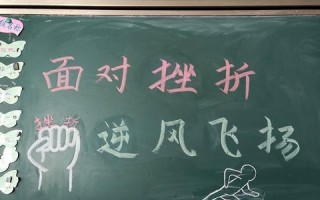 面对挫折
挫折
逆风飞扬